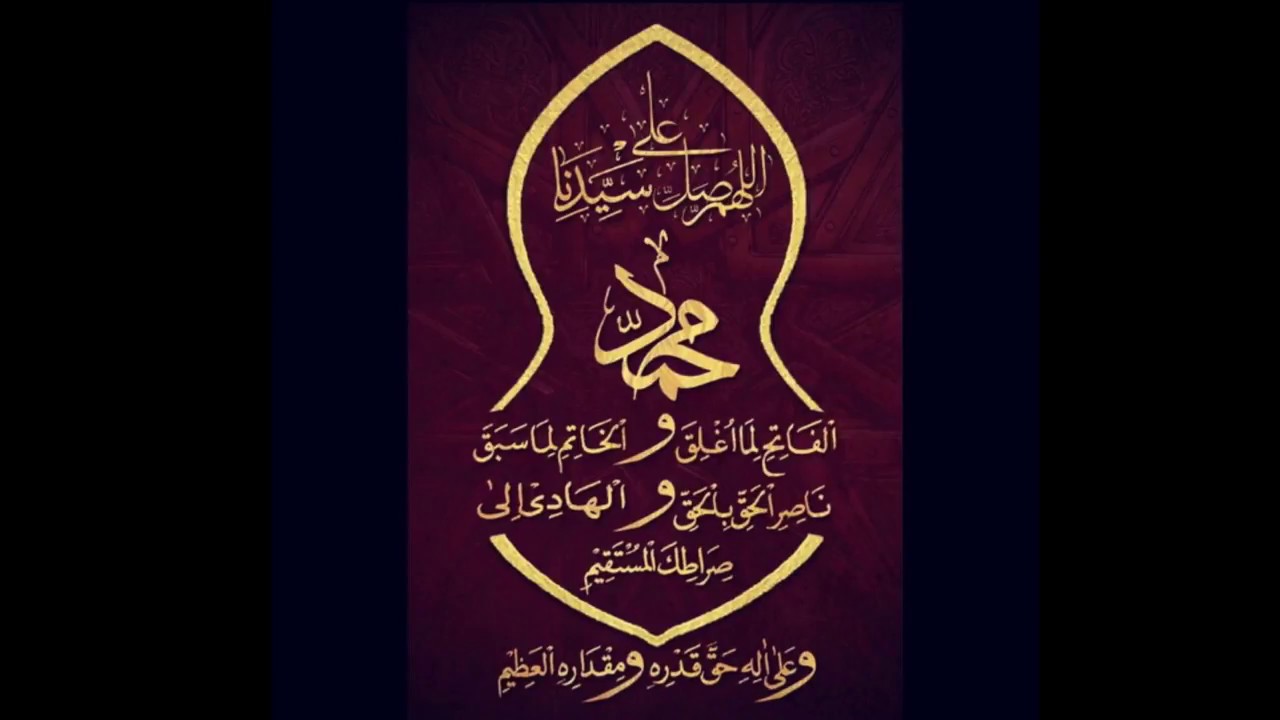 اللهم صَلِّ على سَيِّدِنَا
محمد
اَلْفَاتِحِ لِمَا اُغْلِقَ وَ الْخَاتِمِ لِمَا سَبَقَ
نَاصِرِ الْحَقِّ بِالْحَقِّ وَ الْهَادِىْ اِلىٰ
صِرَاطِكَ الْمُسْتَقِيْمِ
وَعَلىٰ اٰلِهِ حَقَّ قَدْرِهِ وَمِقْدَارِهِ الْعَظِيْمِ